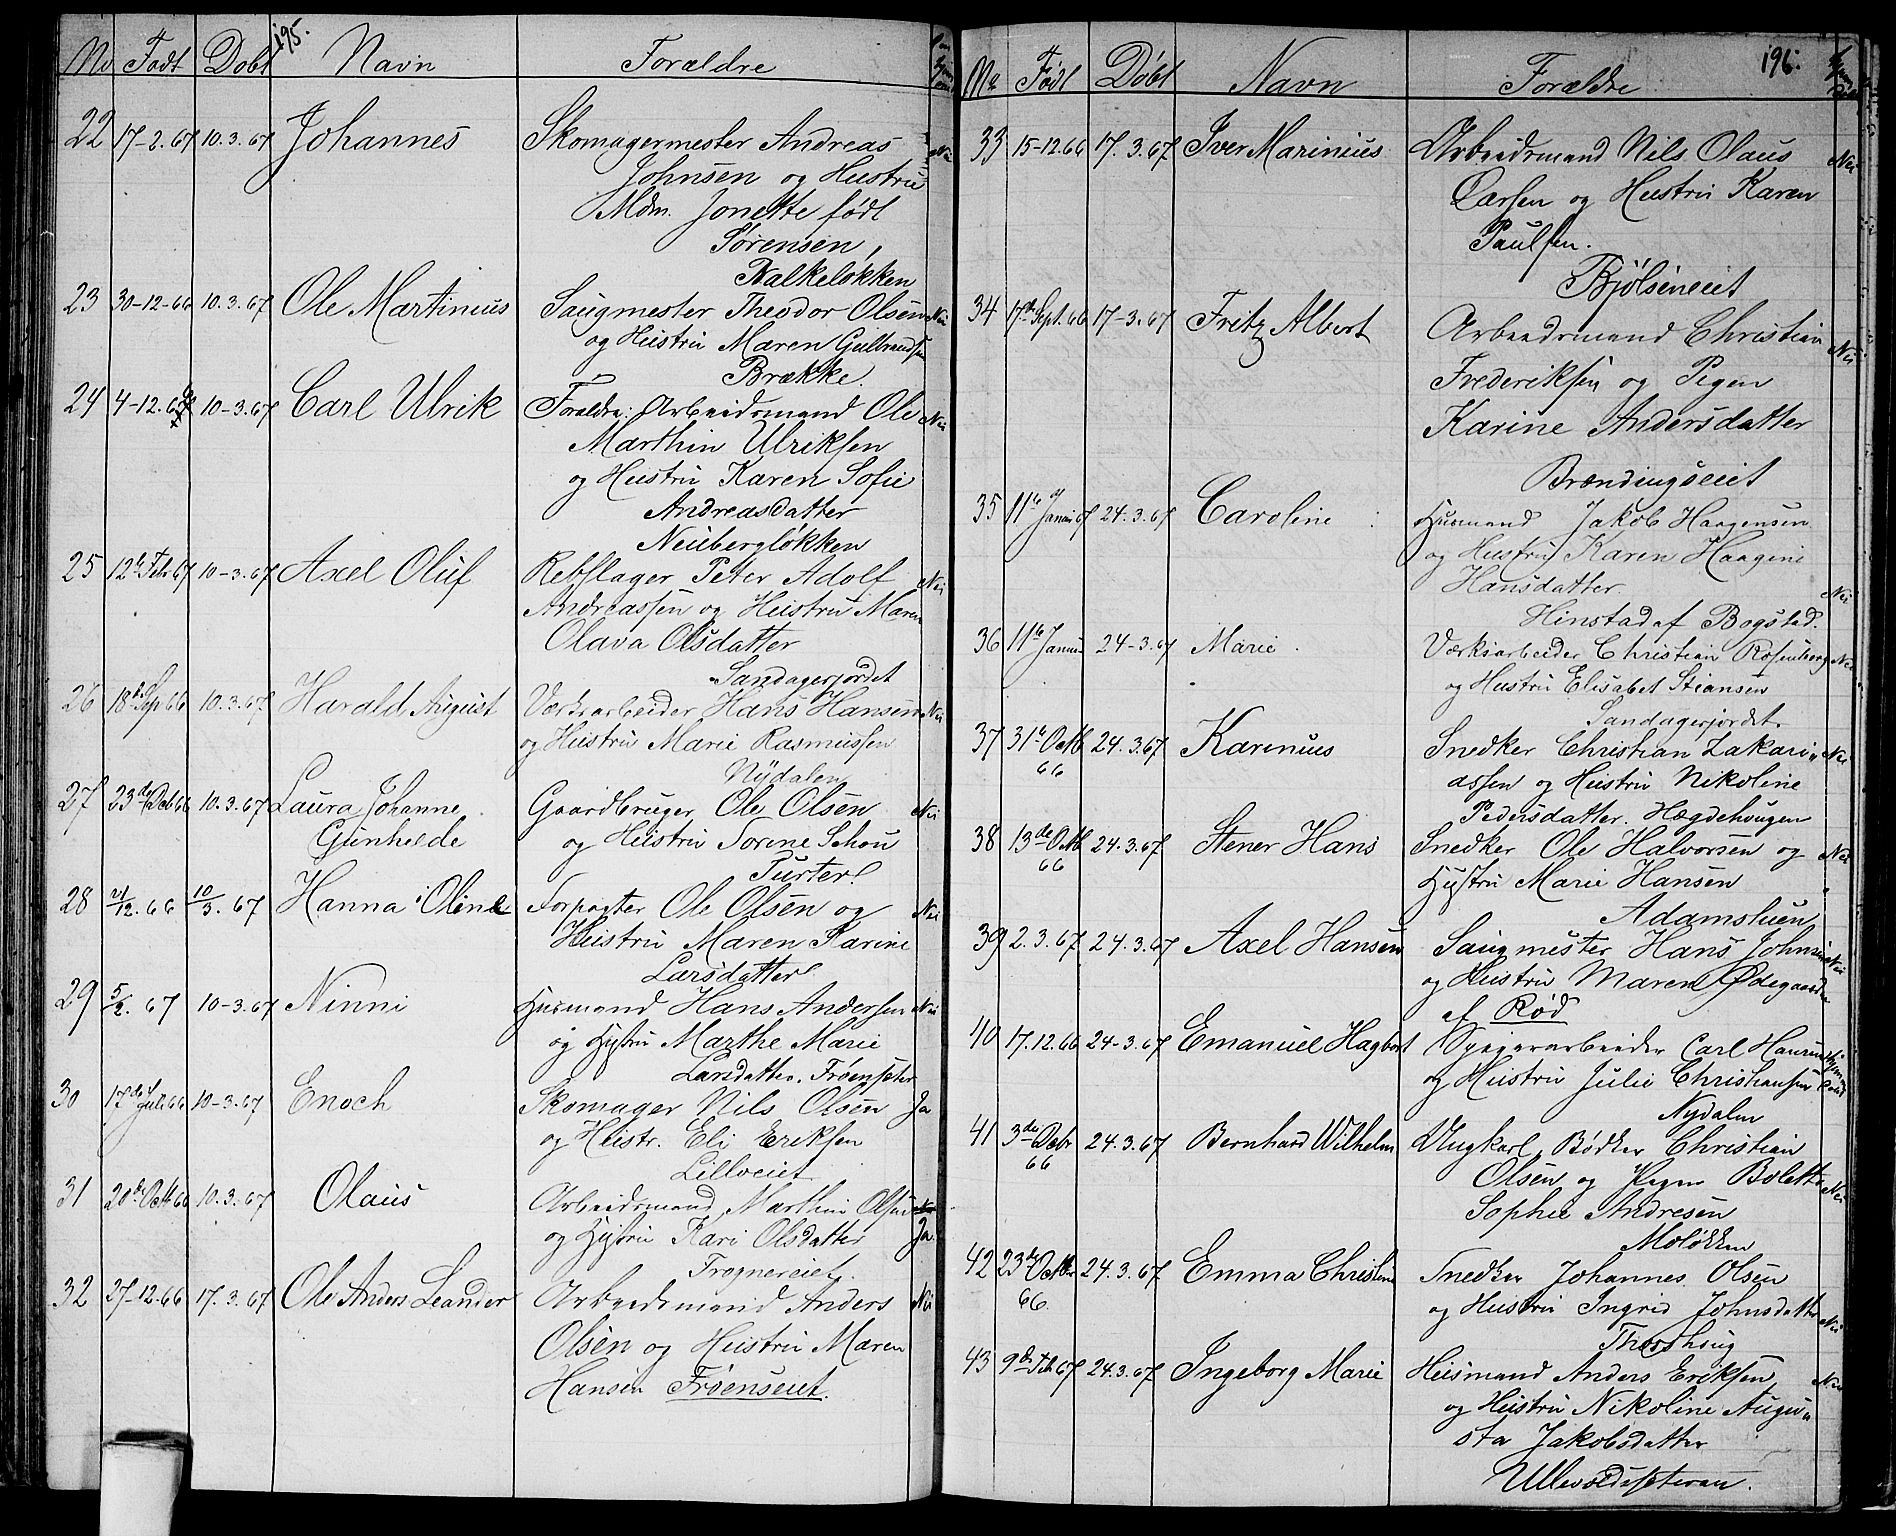 195.
No Født Døbt Navn Forældre
22 17-2.67 10.3.67 Johannes Skomagermester Andreas Nei
Johnsen og Hustru
Mdm. Jonette født
Sørensen,
Balkeløkken
23 30-12-66 10.3.67 Ole Martinius Saugmester Theodor Olsen Nei
og Hustru Maren Gulbrandsen
Brække.
24 4-12.66 10-3.67 Carl Ulrik Forældre: Arbeidsmand Ole Nei
Marthin Ulriksen
og Hustru Karen Sofie
Andreasdatter
Neubergløkken
25 12te Febr 67 10-3.67 Axel Oluf Rebslager Peter Adolf Nei
Andreassen og Hustru Maren
Olava Olsdatter
Sandagerjordet
26 18de Sep 66 10.3.67 Harald August Værksarbeider Hans Hansen Nei
og Hustru Marie Rasmussen
Nydalen
27 23de Deb 66 10.3.67 Laura Johanne Gaardbruger Ole Olsen Nei
Gunhelde og Hustru Sorine Schou
Turter
28 21/12.66 10/3.67 Hanna Oline Forpagter Ole Olsen og Nei
Hustru Maren Karine
Larsdatter
29 5/2.67 10-3.67 Ninni Husmand Hans Andersen Nei
og Hustru Marthe Marie
Larsdatter. Frøensæter
30 17de Juli 66 10-3.67 Enoch Skomager Nils Olsen Ja
og Hustr. Eli Eriksen
Lilloeiet
31 20de Octb 66 10.3.67 Olaus Arbeidsmand Marthin Olsen Nei
og Hustru Kari Olsdatter Ja
Frognereiet.
32 27-12.66 17.3.67 Ole Anders Leander Arbeidsmand Anders Nei
Olsen og Hustru Maren
Hansen Frøenseiet.
196.
No Født Døbt Navn Forældre
33 15-12.66 17.3.67 Iver Marinius Arbeidsmand Nils Olaus Nei
Larsen og Hustru Karen
Paulsen.
Bjølseneiet
34 17de Sept.66 17-3.67 Fritz Albert Arbeidsmand Christian Nei
Frederiksen og Pigen
Karine Andersdatter
Brændingseiet
35 11te Januar 67 24.3.67 Caroline Husmand Jakob Haagensen
og Hustru Karen Haagine
Hansdatter. Nei
Hinstad af Bogstad.
36 11te Januar 24-3.67 Marie. Værksarbeider Christian Rosenborg Nei
og Hustru Elisabet Stiansen
Sandagerjordet
37 31te Octb 24.3.67 Karenius Snedker Christian Zakari Nei
66 assen og Hustru Nikoline
Pedersdatter. Hægdehougen
38 13de Octb 24.3.67 Stener Hans Snedker Ole Halvorsen og Nei
66 Hustru Marie Hansen
Adamstuen
39 2.3.67 24.3.67 Axel Hansen Saugmester Hans Johnsen Nei
og Hustru Maren Ødegaarden
af Rød
40 17.12.66 24-3.67 Emanuel Hagbart Spigerarbeider Carl Hansen
og Hustru Julie Christiansen
Nydalen
41 3de Decbr 24.3.67 Bernhard Wilhelm Ungkarl Bødker Christian
66 Olsen og Pigen Bolette Nei
Sophie Andresen
Moløkken
42 23de Octbr 24.3.67 Emma Christine Snedker Johannes Olsen
66. og Hustru Ingrid Johnsdatter Nei
Thorshoug
43 9de Feb 67 24.3.67 Ingeborg Marie Husmand Anders Eriksen Nei
og Hustru Nikoline Augu
sta Jakobsdatter
Ullevoldsæteran.